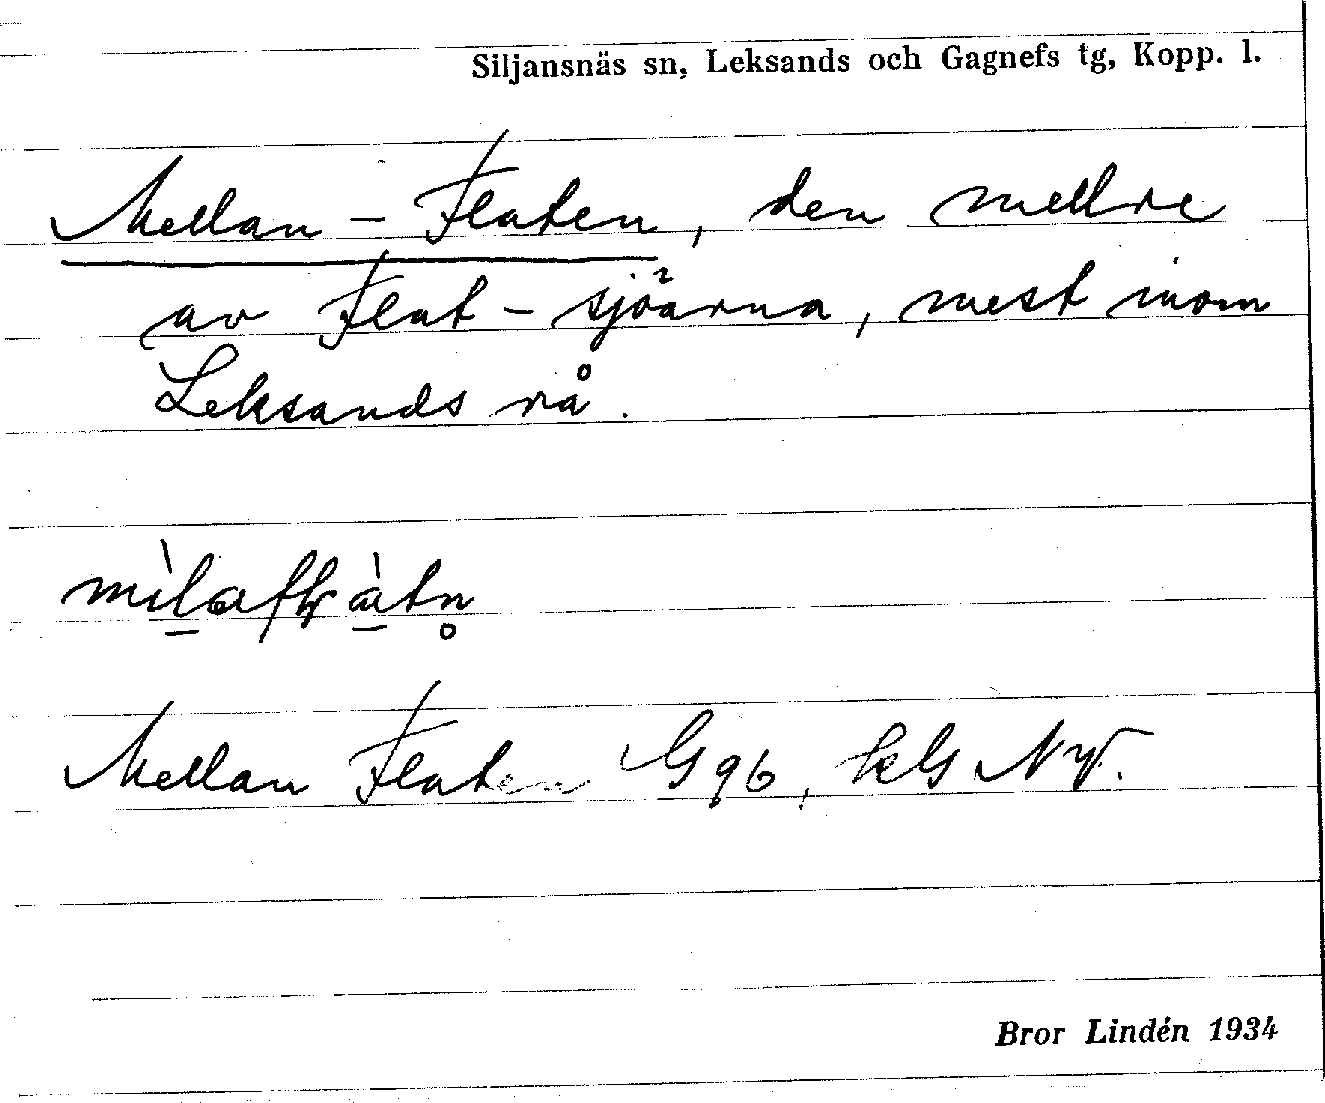 Siljansnäs sn, Leksands och Gagnefs tg, Kopp. l.
Mellan-Flaten, den mellre
av Flat-sjöarna, mest inom
Leksands rå.
Mellan Flaten G 96, NV.
Bror Lindén 1934